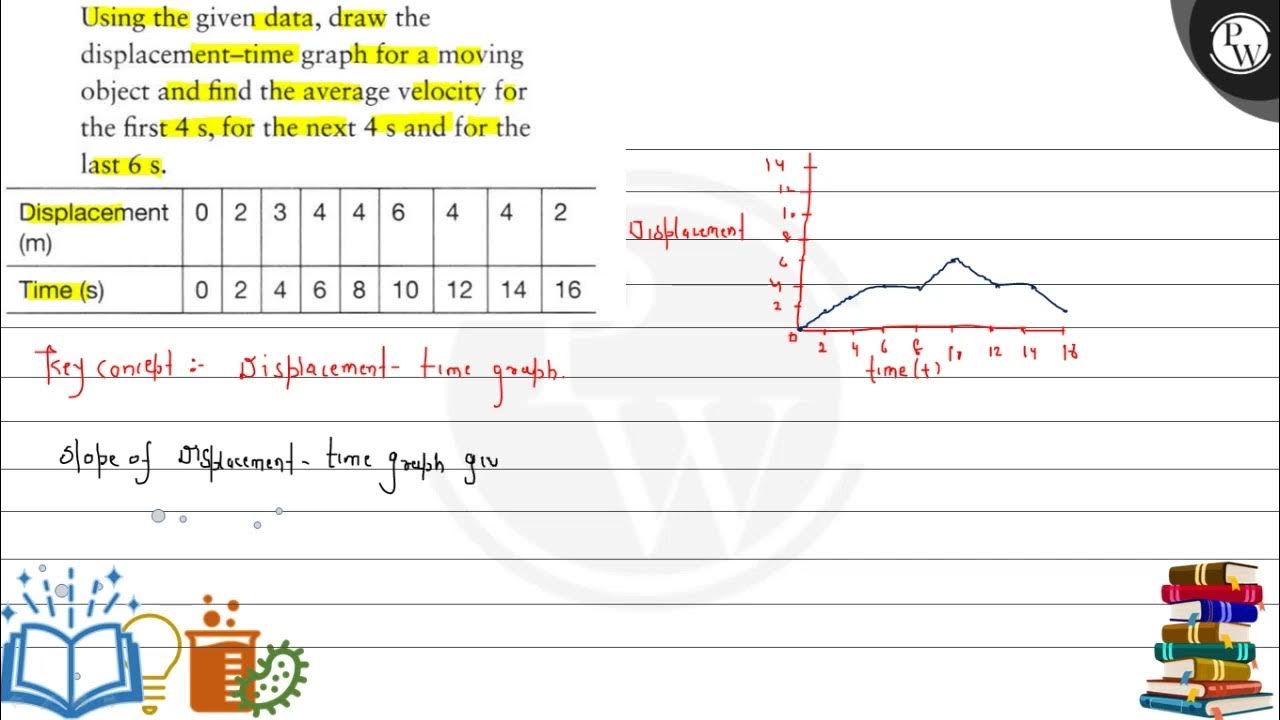 Using the given data, draw the
displacement–time graph for a moving
object and find the average velocity for
the first 4 s, for the next 4 s and for the
last 6 s.
Displacement (m) 0 2 3 4 4 6 4 4 2
Time (s) 0 2 4 6 8 10 12 14 16
PW
14
12
10
8
6
4
2
0
Displacement
2 4 6 8 10 12 14 16
time(t)
Key concept :- Displacement- time graph.
Slope of Displacement- time graph giv
PW